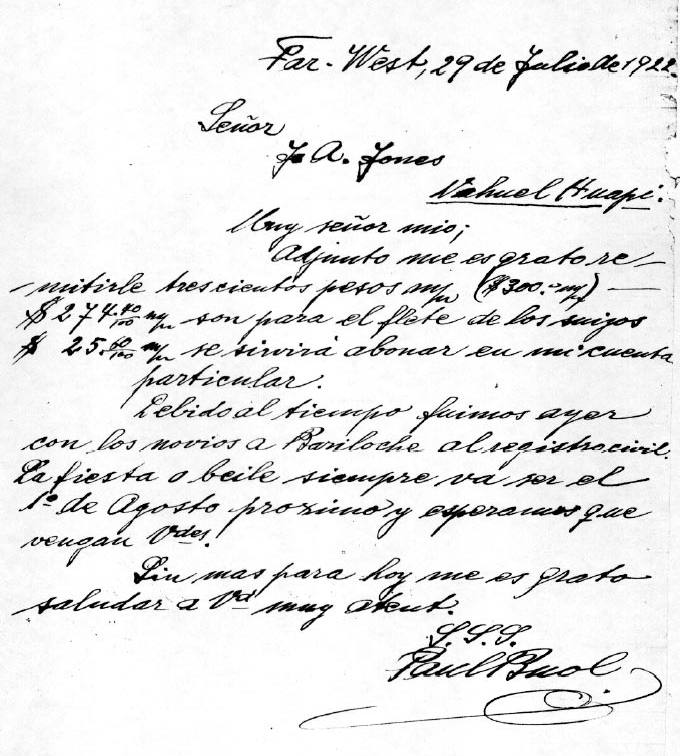 Far-West, 29 de Julio de 1922.
Señor
J. A. Jones
Nahuel Huapi.
Muy señor mio;
Adjunto me es grato re-
-mitirle trescientos pesos m/n ($300.- m/n) —
$ 274.40/100 m/n son para el flete de los suizos
$ 25.60/100 m/n se sirvirá abonar en mi cuenta
particular.
Debido al tiempo fuimos ayer
con los novios a Bariloche al registro civil.
La fiesta o beile siempre va ser el
1º de Agosto proximo y esperamos que
vengan Vdes.
Sin mas para hoy me es grato
saludar a Vd muy atent.
S.S.S.
Paul Buol